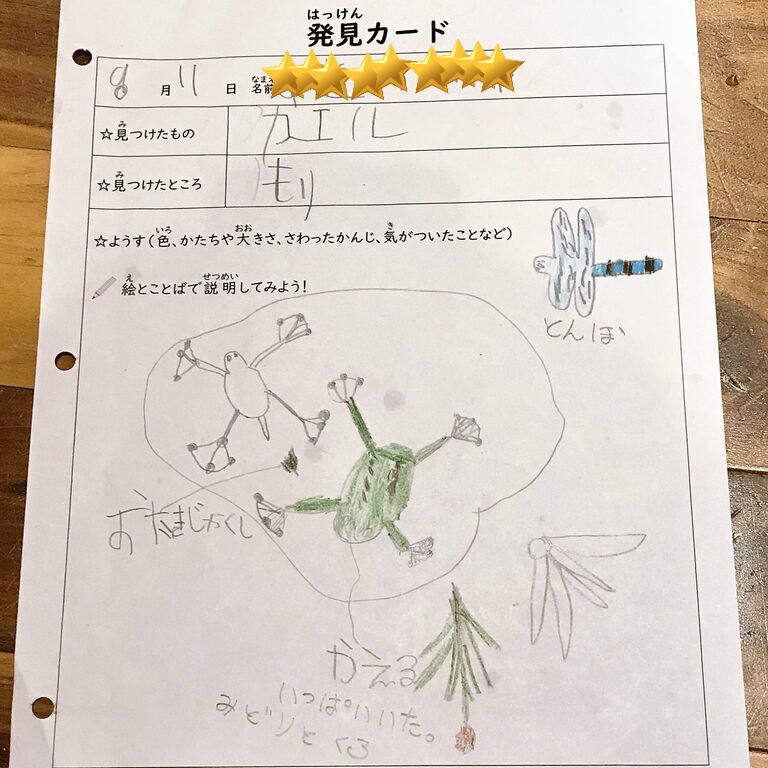 はっけん
発見カード
8月11日 名前
☆見つけたもの カエル
☆見つけたところ もり
☆ようす(色、かたちや大きさ、さわったかんじ、気がついたことなど)
絵とことばで説明してみよう!
とんぼ
おたまじゃくし
かえる
いっぱいいた。
みどりとくろ